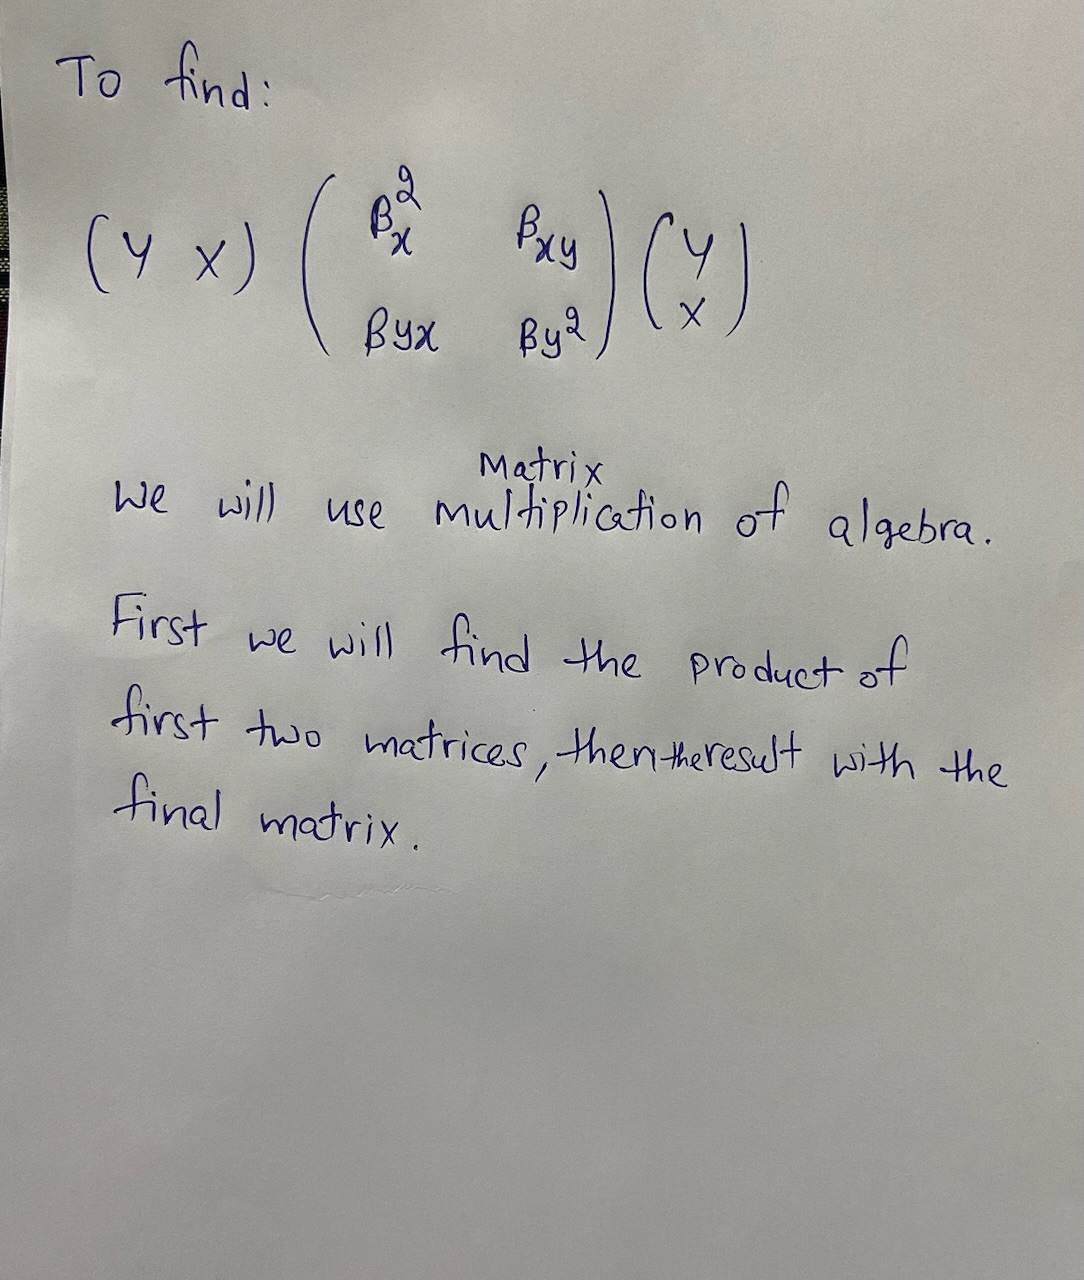 To find:
(y x) ( βₓ² βxy ) ( y )
( βyx βy² ) ( x )
Matrix
We will use multiplication of algebra.
First we will find the product of
first two matrices, then the result with the
final matrix.